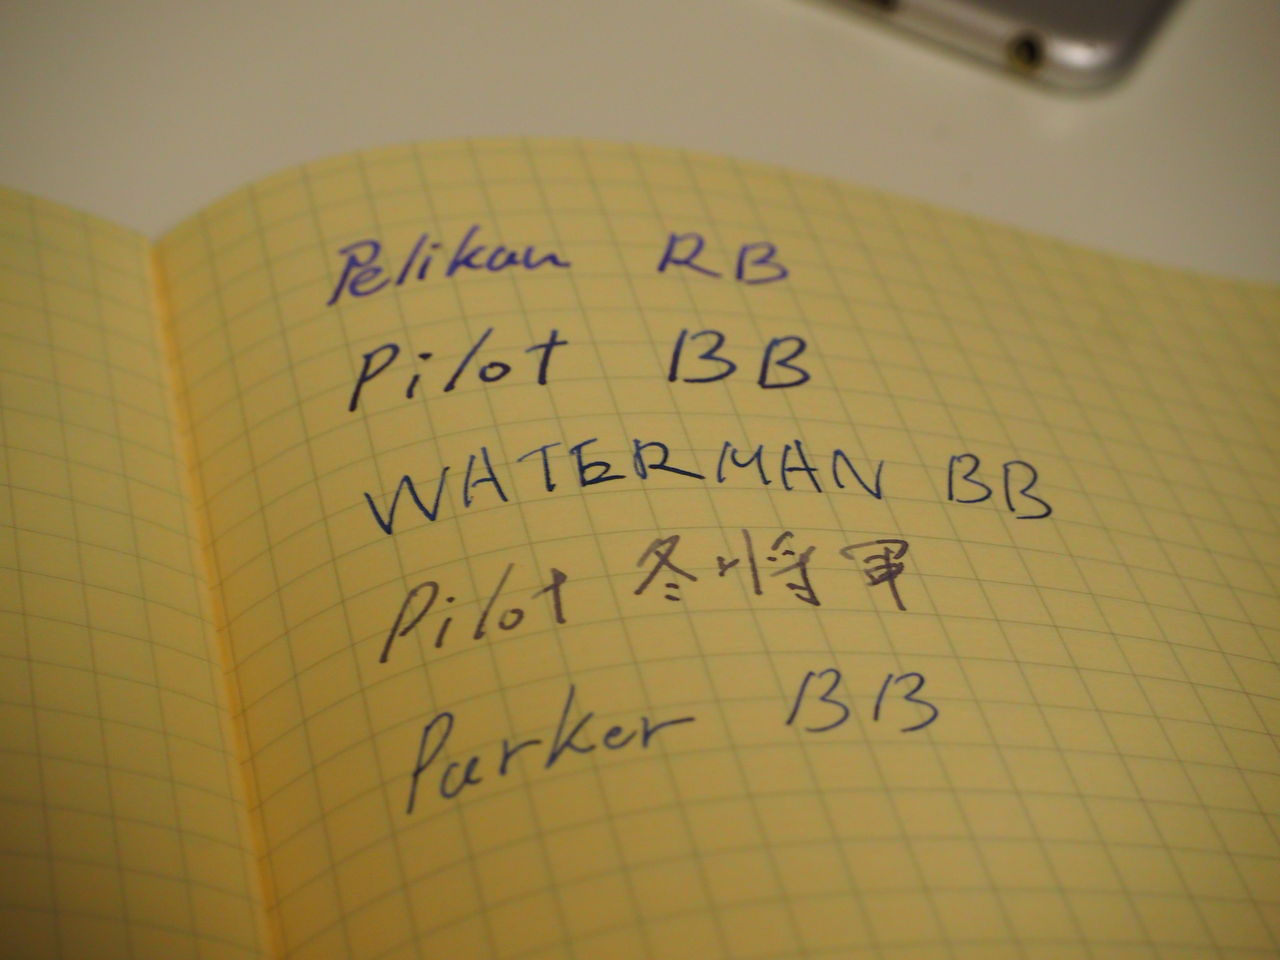 Pelikan RB
Pilot BB
WATERMAN BB
Pilot 冬将軍
Parker BB